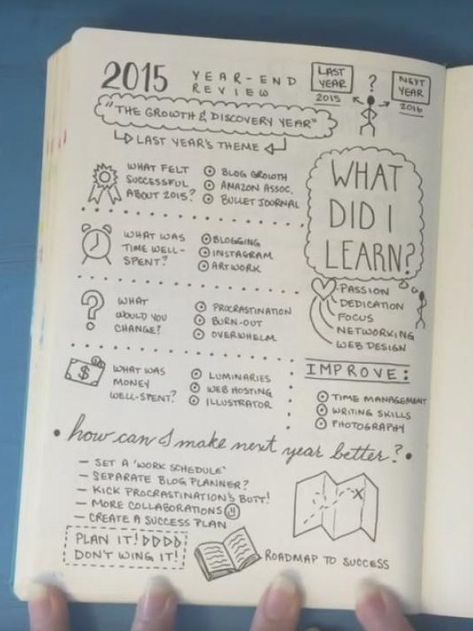 2015 YEAR-END
REVIEW
LAST
YEAR
2015
?
NEXT
YEAR
2016
"THE GROWTH & DISCOVERY YEAR"
LAST YEAR'S THEME
WHAT FELT
SUCCESSFUL
ABOUT 2015?
BLOG GROWTH
AMAZON ASSOC.
BULLET JOURNAL
WHAT WAS
TIME WELL-
SPENT?
BLOGGING
INSTAGRAM
ARTWORK
?
WHAT
WOULD YOU
CHANGE?
PROCRASTINATION
BURN-OUT
OVERWHELM
$
WHAT WAS
MONEY
WELL-SPENT?
LUMINARIES
WEB HOSTING
ILLUSTRATOR
WHAT
DID I
LEARN?
PASSION
DEDICATION
FOCUS
NETWORKING
WEB DESIGN
IMPROVE:
TIME MANAGEMENT
WRITING SKILLS
PHOTOGRAPHY
how can I make next year better?
- SET A 'WORK SCHEDULE'
- SEPARATE BLOG PLANNER?
- KICK PROCRASTINATION'S BUTT!
- MORE COLLABORATIONS
- CREATE A SUCCESS PLAN
PLAN IT!
DON'T WING IT!
X
ROADMAP TO SUCCESS